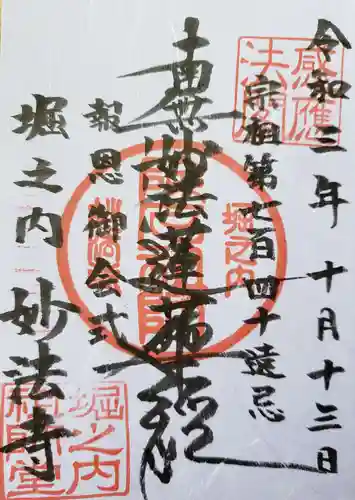 令和二年十月十三日
宗祖第七百四十遠忌
南無妙法蓮華經
報恩御会式
堀之内妙法寺
感應
堀之内
堀之内
祖師堂